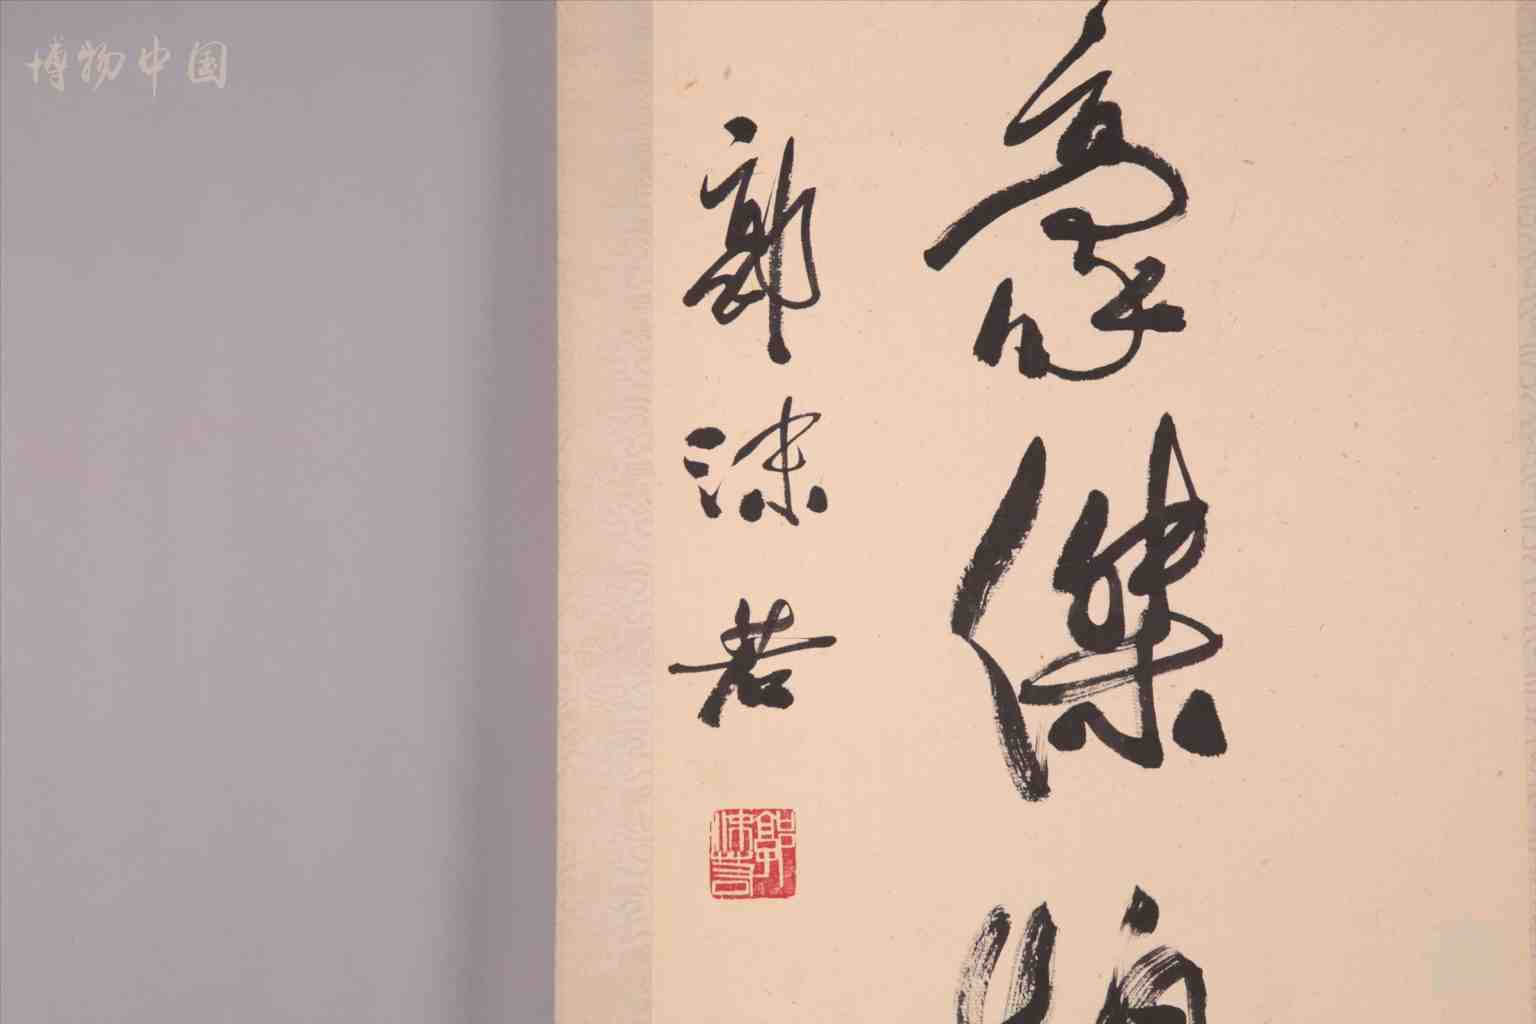 博物中国
豪傑
郭沫若
郭沫若